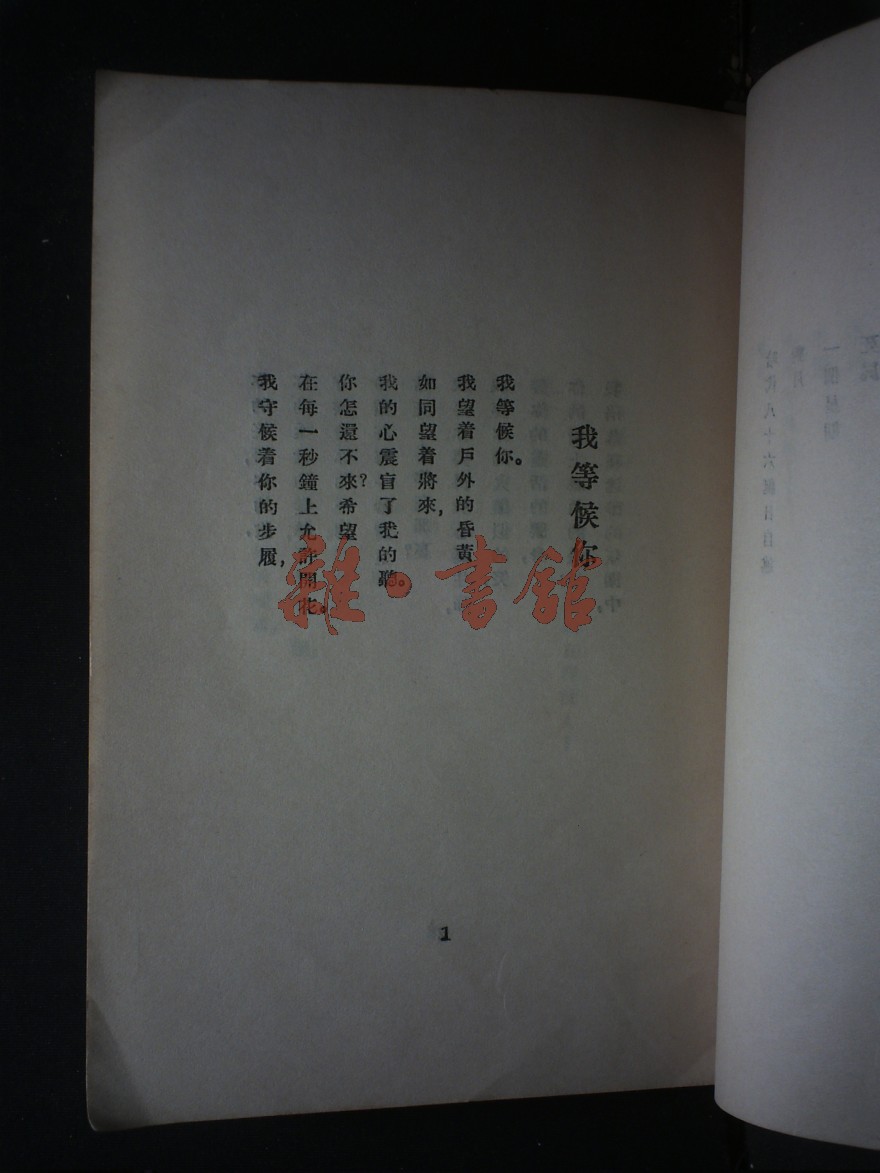 我等候你
我等候你。
我望着戶外的昏黃
如同望着將來，
我的心震盲了我的聽。
你怎還不來？希望
在每一秒鐘上允許開花。
我守候着你的步履，
1
雜·書館